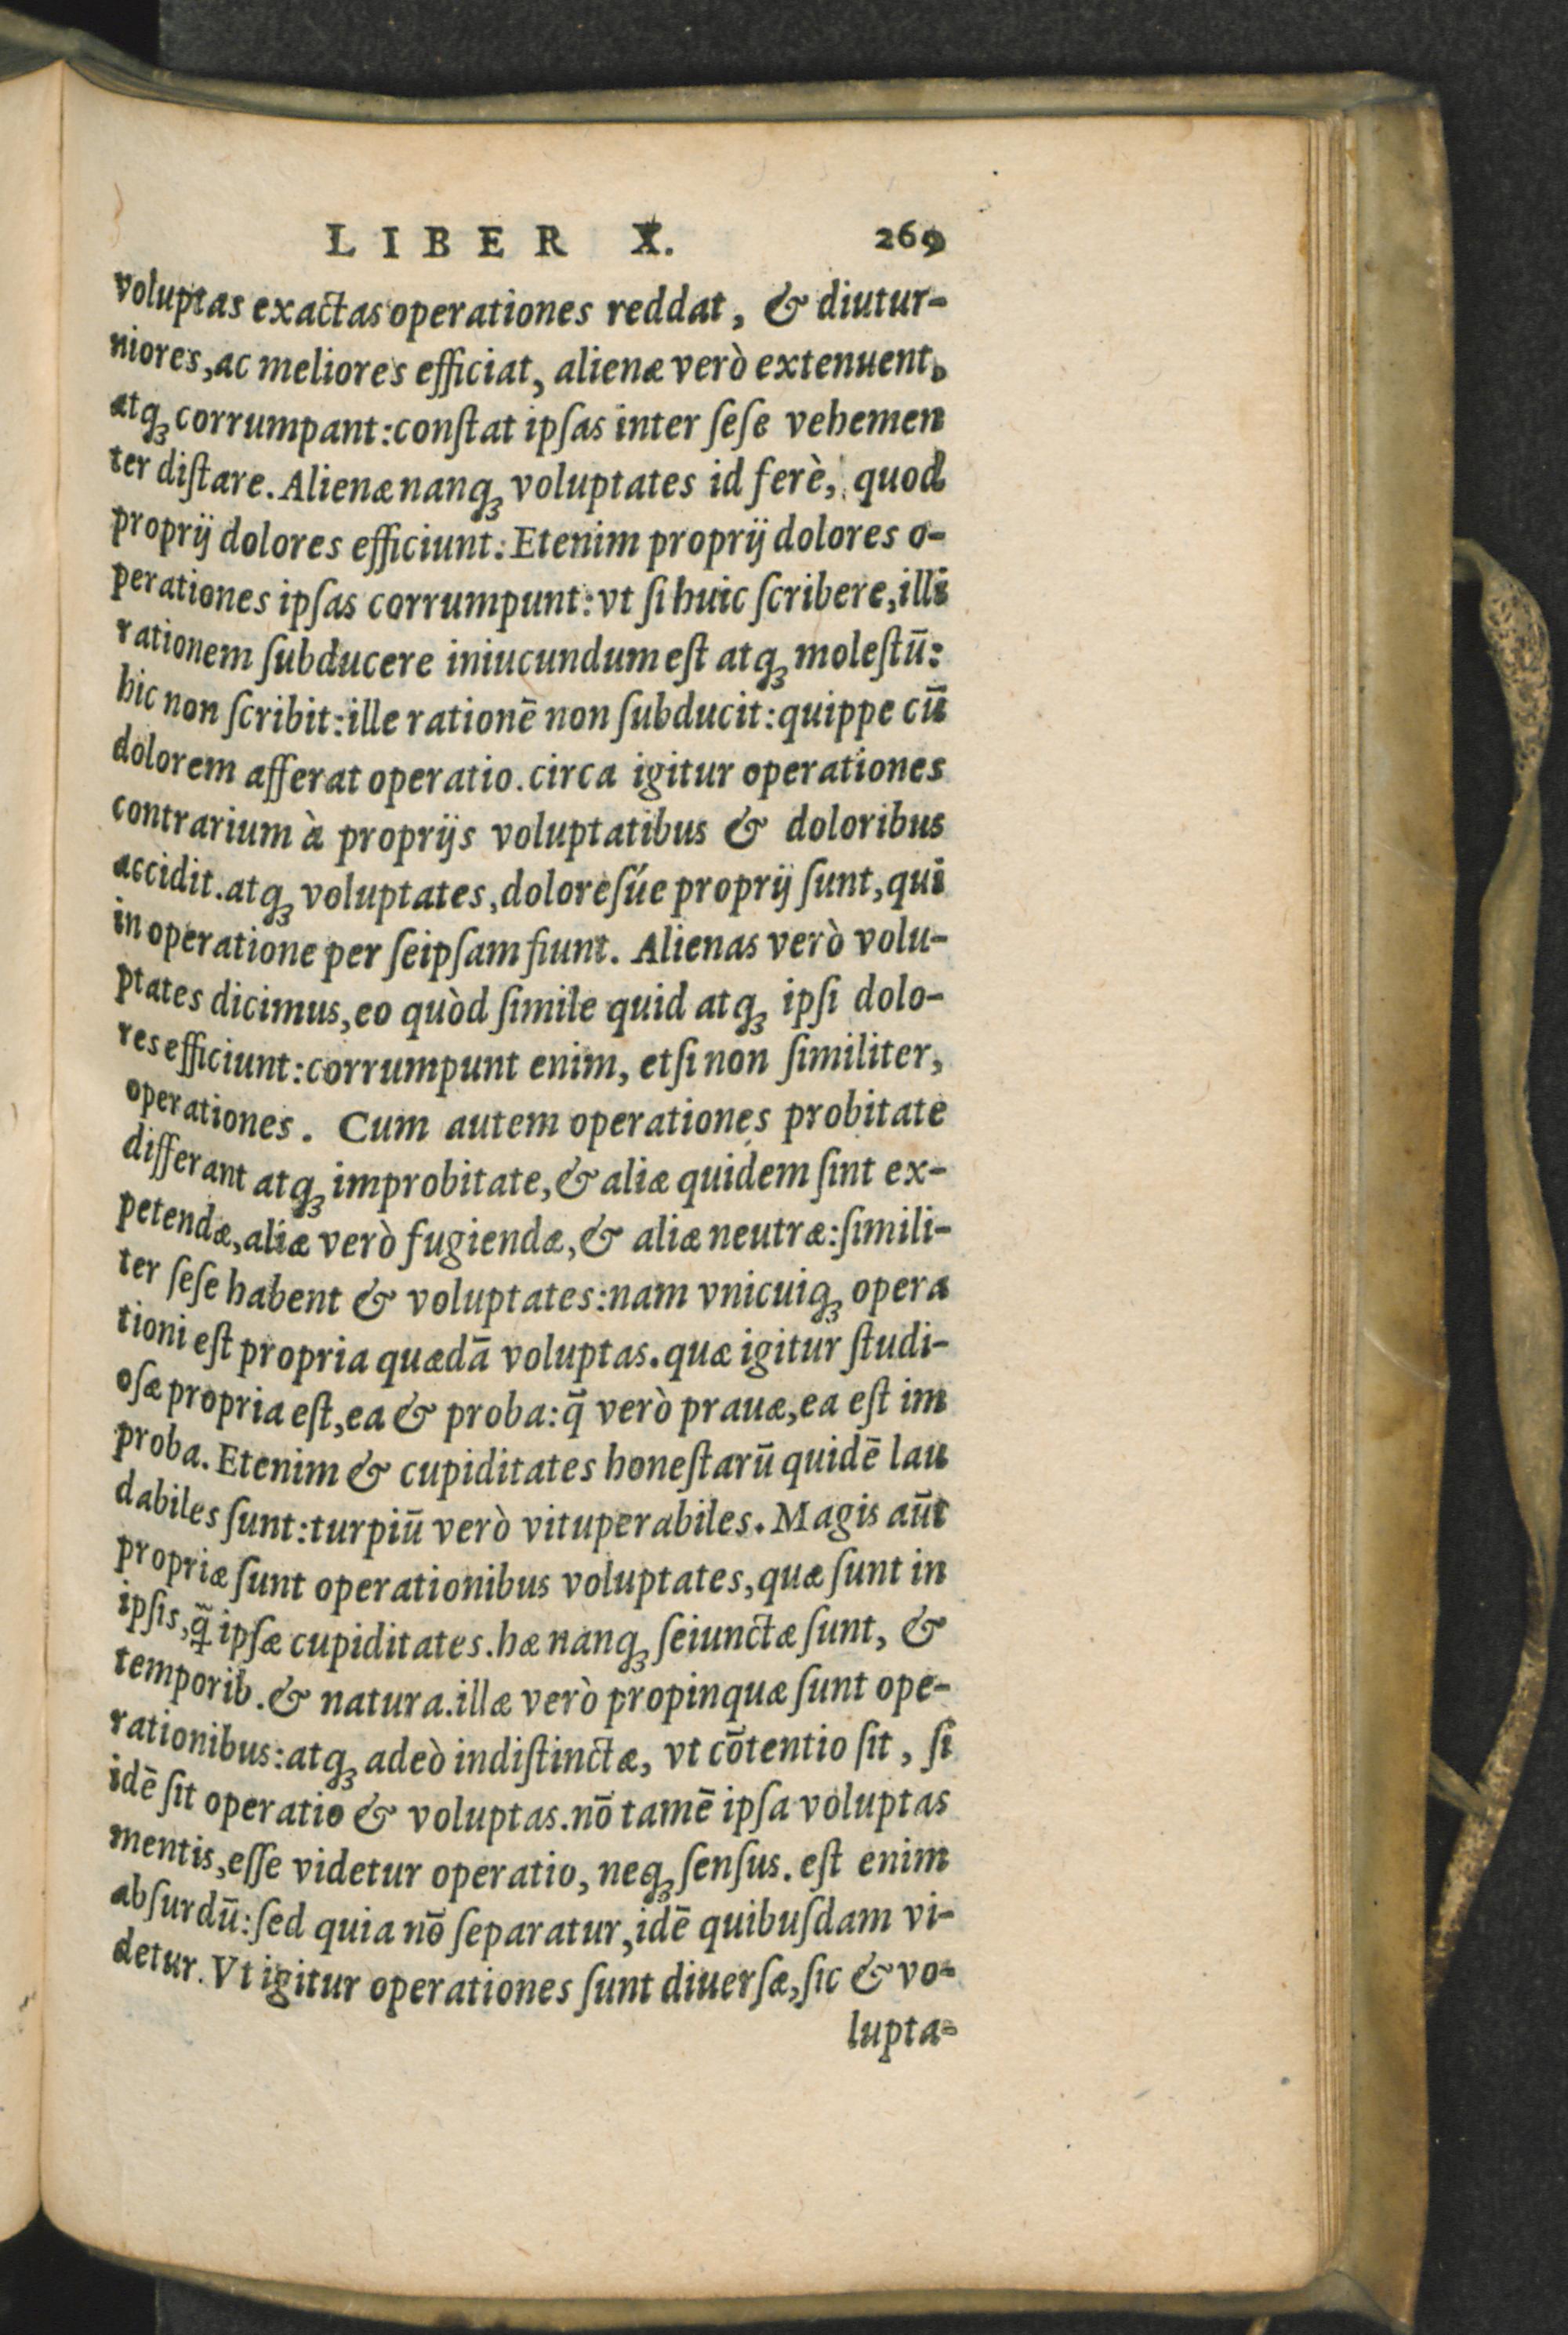 LIBER X. 269
voluptas exactas operationes reddat, & diutur-
niores, ac meliores efficiat, alienæ verò extenuent,
atqꝫ corrumpant: conſtat ipſas inter ſeſe vehemen
ter diſtare. Alienæ nanqꝫ voluptates id ferè, quod
proprij dolores efficiunt: Etenim proprij dolores o-
perationes ipſas corrumpunt: vt ſi huic ſcribere, illi
rationem ſubducere iniucundum eſt atqꝫ moleſtū:
hic non ſcribit: ille rationē non ſubducit: quippe cū
dolorem afferat operatio. circa igitur operationes
contrarium à proprijs voluptatibus & doloribus
accidit. atqꝫ voluptates, doloreſúe proprij ſunt, qui
in operatione per ſeipſam fiunt. Alienas verò volu-
ptates dicimus, eo quòd ſimile quid atqꝫ ipſi dolo-
res efficiunt: corrumpunt enim, etſi non ſimiliter,
operationes. Cum autem operationes probitate
differant atqꝫ improbitate, & aliæ quidem ſint ex-
petendæ, aliæ verò fugiendæ, & aliæ neutræ: ſimili-
ter ſeſe habent & voluptates: nam vnicuiqꝫ opera
tioni eſt propria quædā voluptas. quæ igitur ſtudi-
oſæ propria eſt, ea & proba: q̄ verò prauæ, ea eſt im
proba. Etenim & cupiditates honeſtarū quidē lau
dabiles ſunt: turpiū verò vituperabiles. Magis aūt
propriæ ſunt operationibus voluptates, quæ ſunt in
ipſis, q̄ ipſæ cupiditates. hæ nanqꝫ ſeiunctæ ſunt, &
temporib. & natura. illæ verò propinquæ ſunt ope-
rationibus: atqꝫ adeò indiſtinctæ, vt cōtentio ſit, ſi
idē ſit operatio & voluptas. nō tamē ipſa voluptas
mentis, eſſe videtur operatio, neqꝫ ſenſus. eſt enim
abſurdū: ſed quia nō ſeparatur, idē quibuſdam vi-
detur. Vt igitur operationes ſunt diuerſæ, ſic & vo-
lupta-